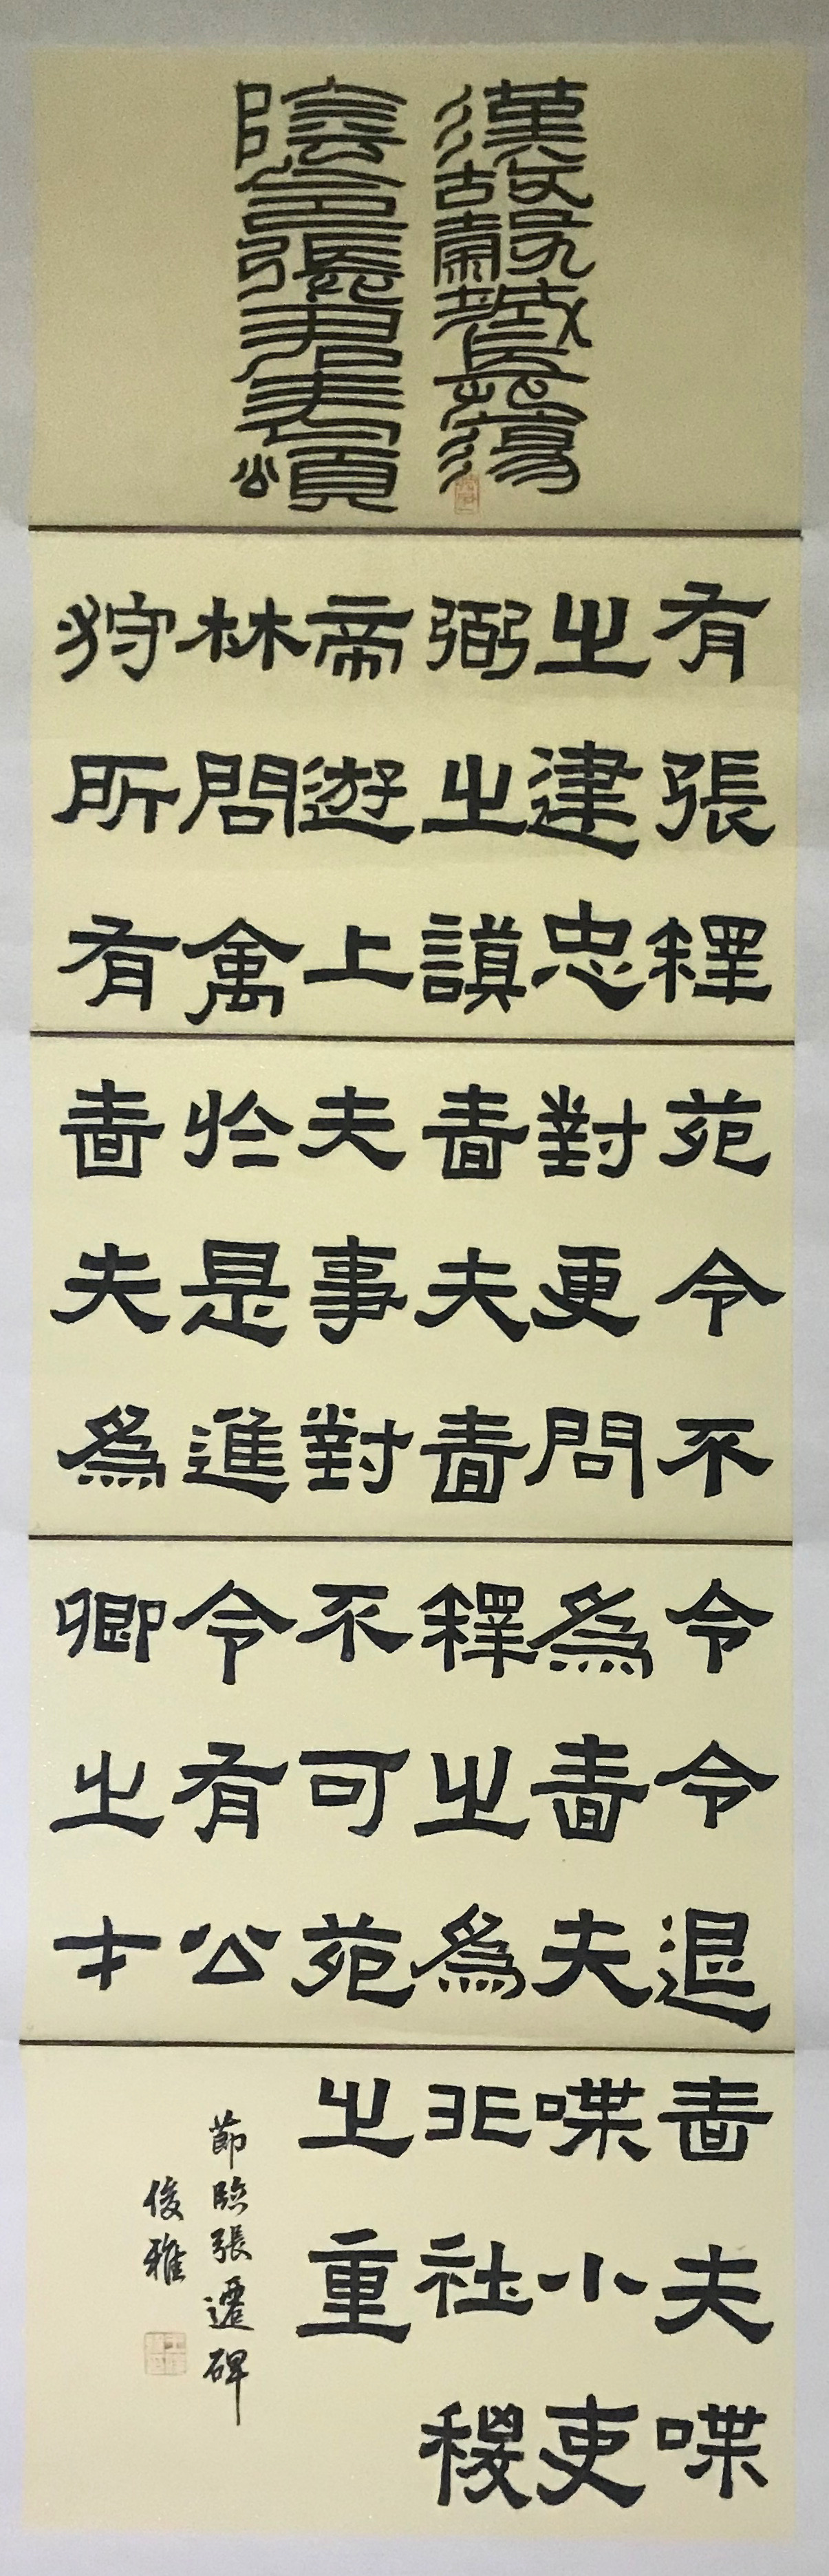 漢故穀城長蕩
陰令張君表頌
有張釋
之建忠
弼之謨
帝遊上
林問禽
狩所有
苑令不
對更問
嗇夫嗇
夫事對
於是進
嗇夫為
令令退
為嗇夫
釋之為
不可苑
令有公
卿之才
嗇夫喋
喋小吏
非社稷
之重
節臨張遷碑
俊雅